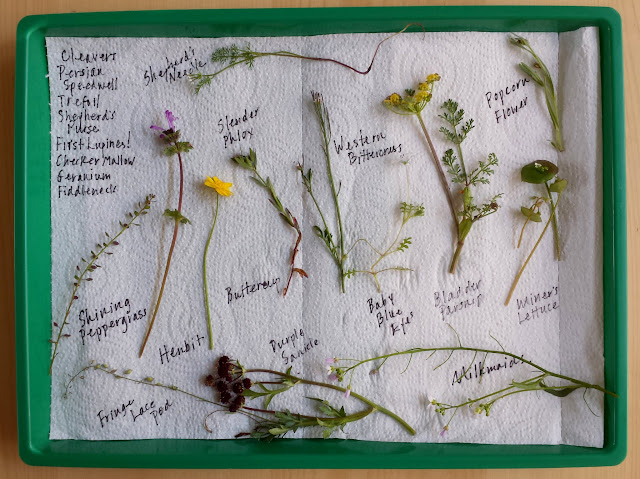 Cleavers
Persian
Speedwell
Trefoil
Shepherd's
Purse
First Lupines!
Checker Mallow
Geranium
Fiddleneck
Shepherd's
Needle
Slender
Phlox
Western
Bittercress
Popcorn
Flower
Shining
Peppergrass
Henbit
Buttercup
Purple
Sanicle
Baby
Blue
Eyes
Bladder
Parsnip
Miner's
Lettuce
Fringe
Lace
Pod
Milkmaids